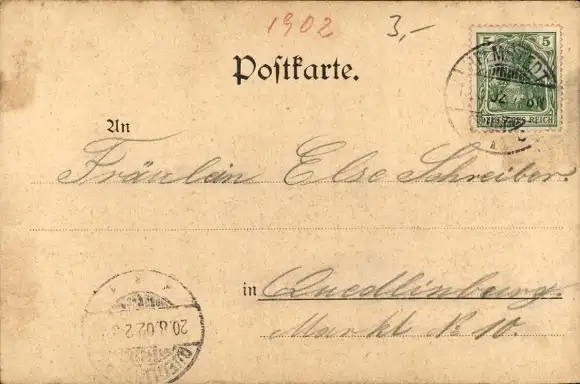 1902 3,-
Postkarte.
5 5
DEUTSCHES REICH
An
Fräulein Else Schreiber.
in Quedlinburg.
Markt N 10.
20.8.02.2-